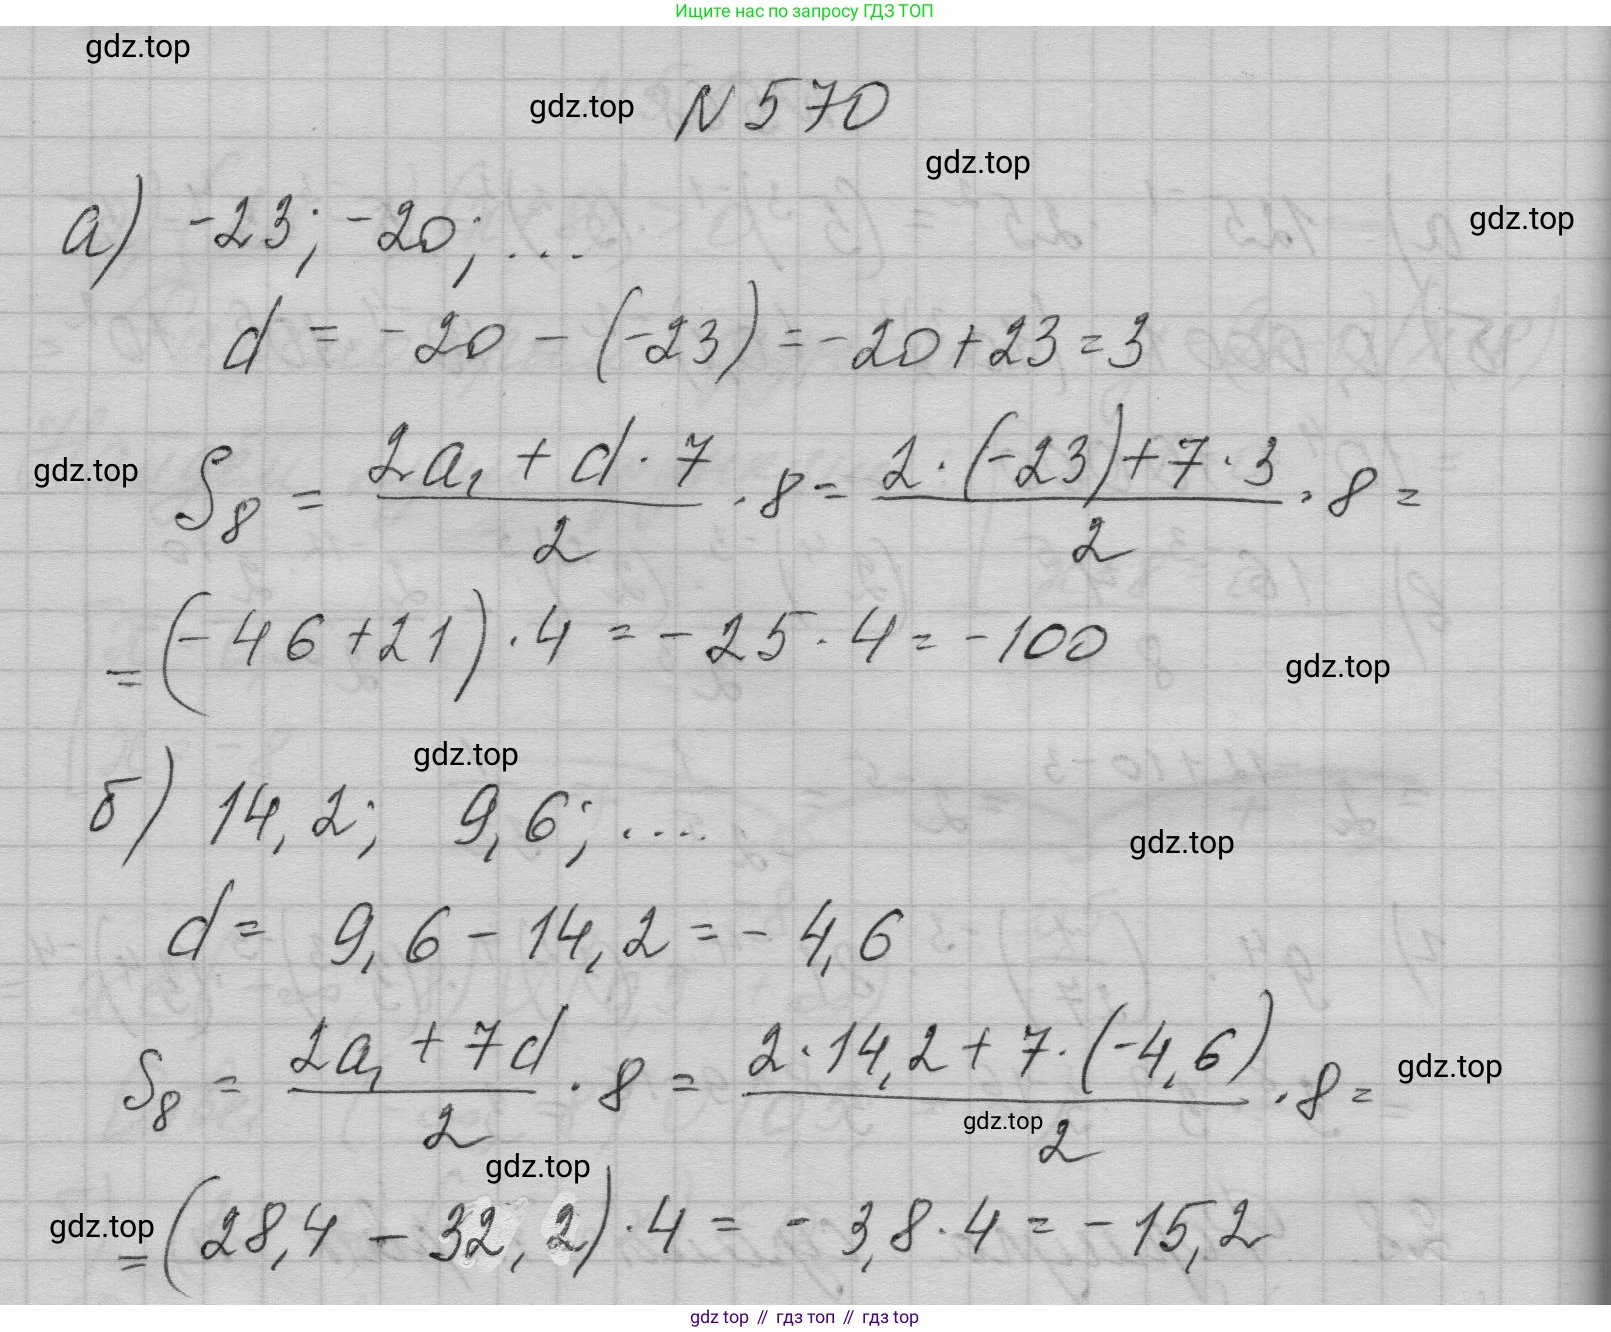 Ищите нас по запросу ГДЗ ТОП
gdz.top
gdz.top N 570
gdz.top
gdz.top
а) -23; -20; ...
d = -20 - (-23) = -20 + 23 = 3
gdz.top
S₈ = (2a₁ + d · 7)/2 · 8 = (2 · (-23) + 7 · 3)/2 · 8 =
= (-46 + 21) · 4 = -25 · 4 = -100
gdz.top
gdz.top
б) 14,2; 9,6; ....
gdz.top
d = 9,6 - 14,2 = -4,6
S₈ = (2a₁ + 7d)/2 · 8 = (2 · 14,2 + 7 · (-4,6))/2 · 8 =
gdz.top
gdz.top
gdz.top
gdz.top
= (28,4 - 32,2) · 4 = -3,8 · 4 = -15,2
gdz top // гдз топ // gdz top